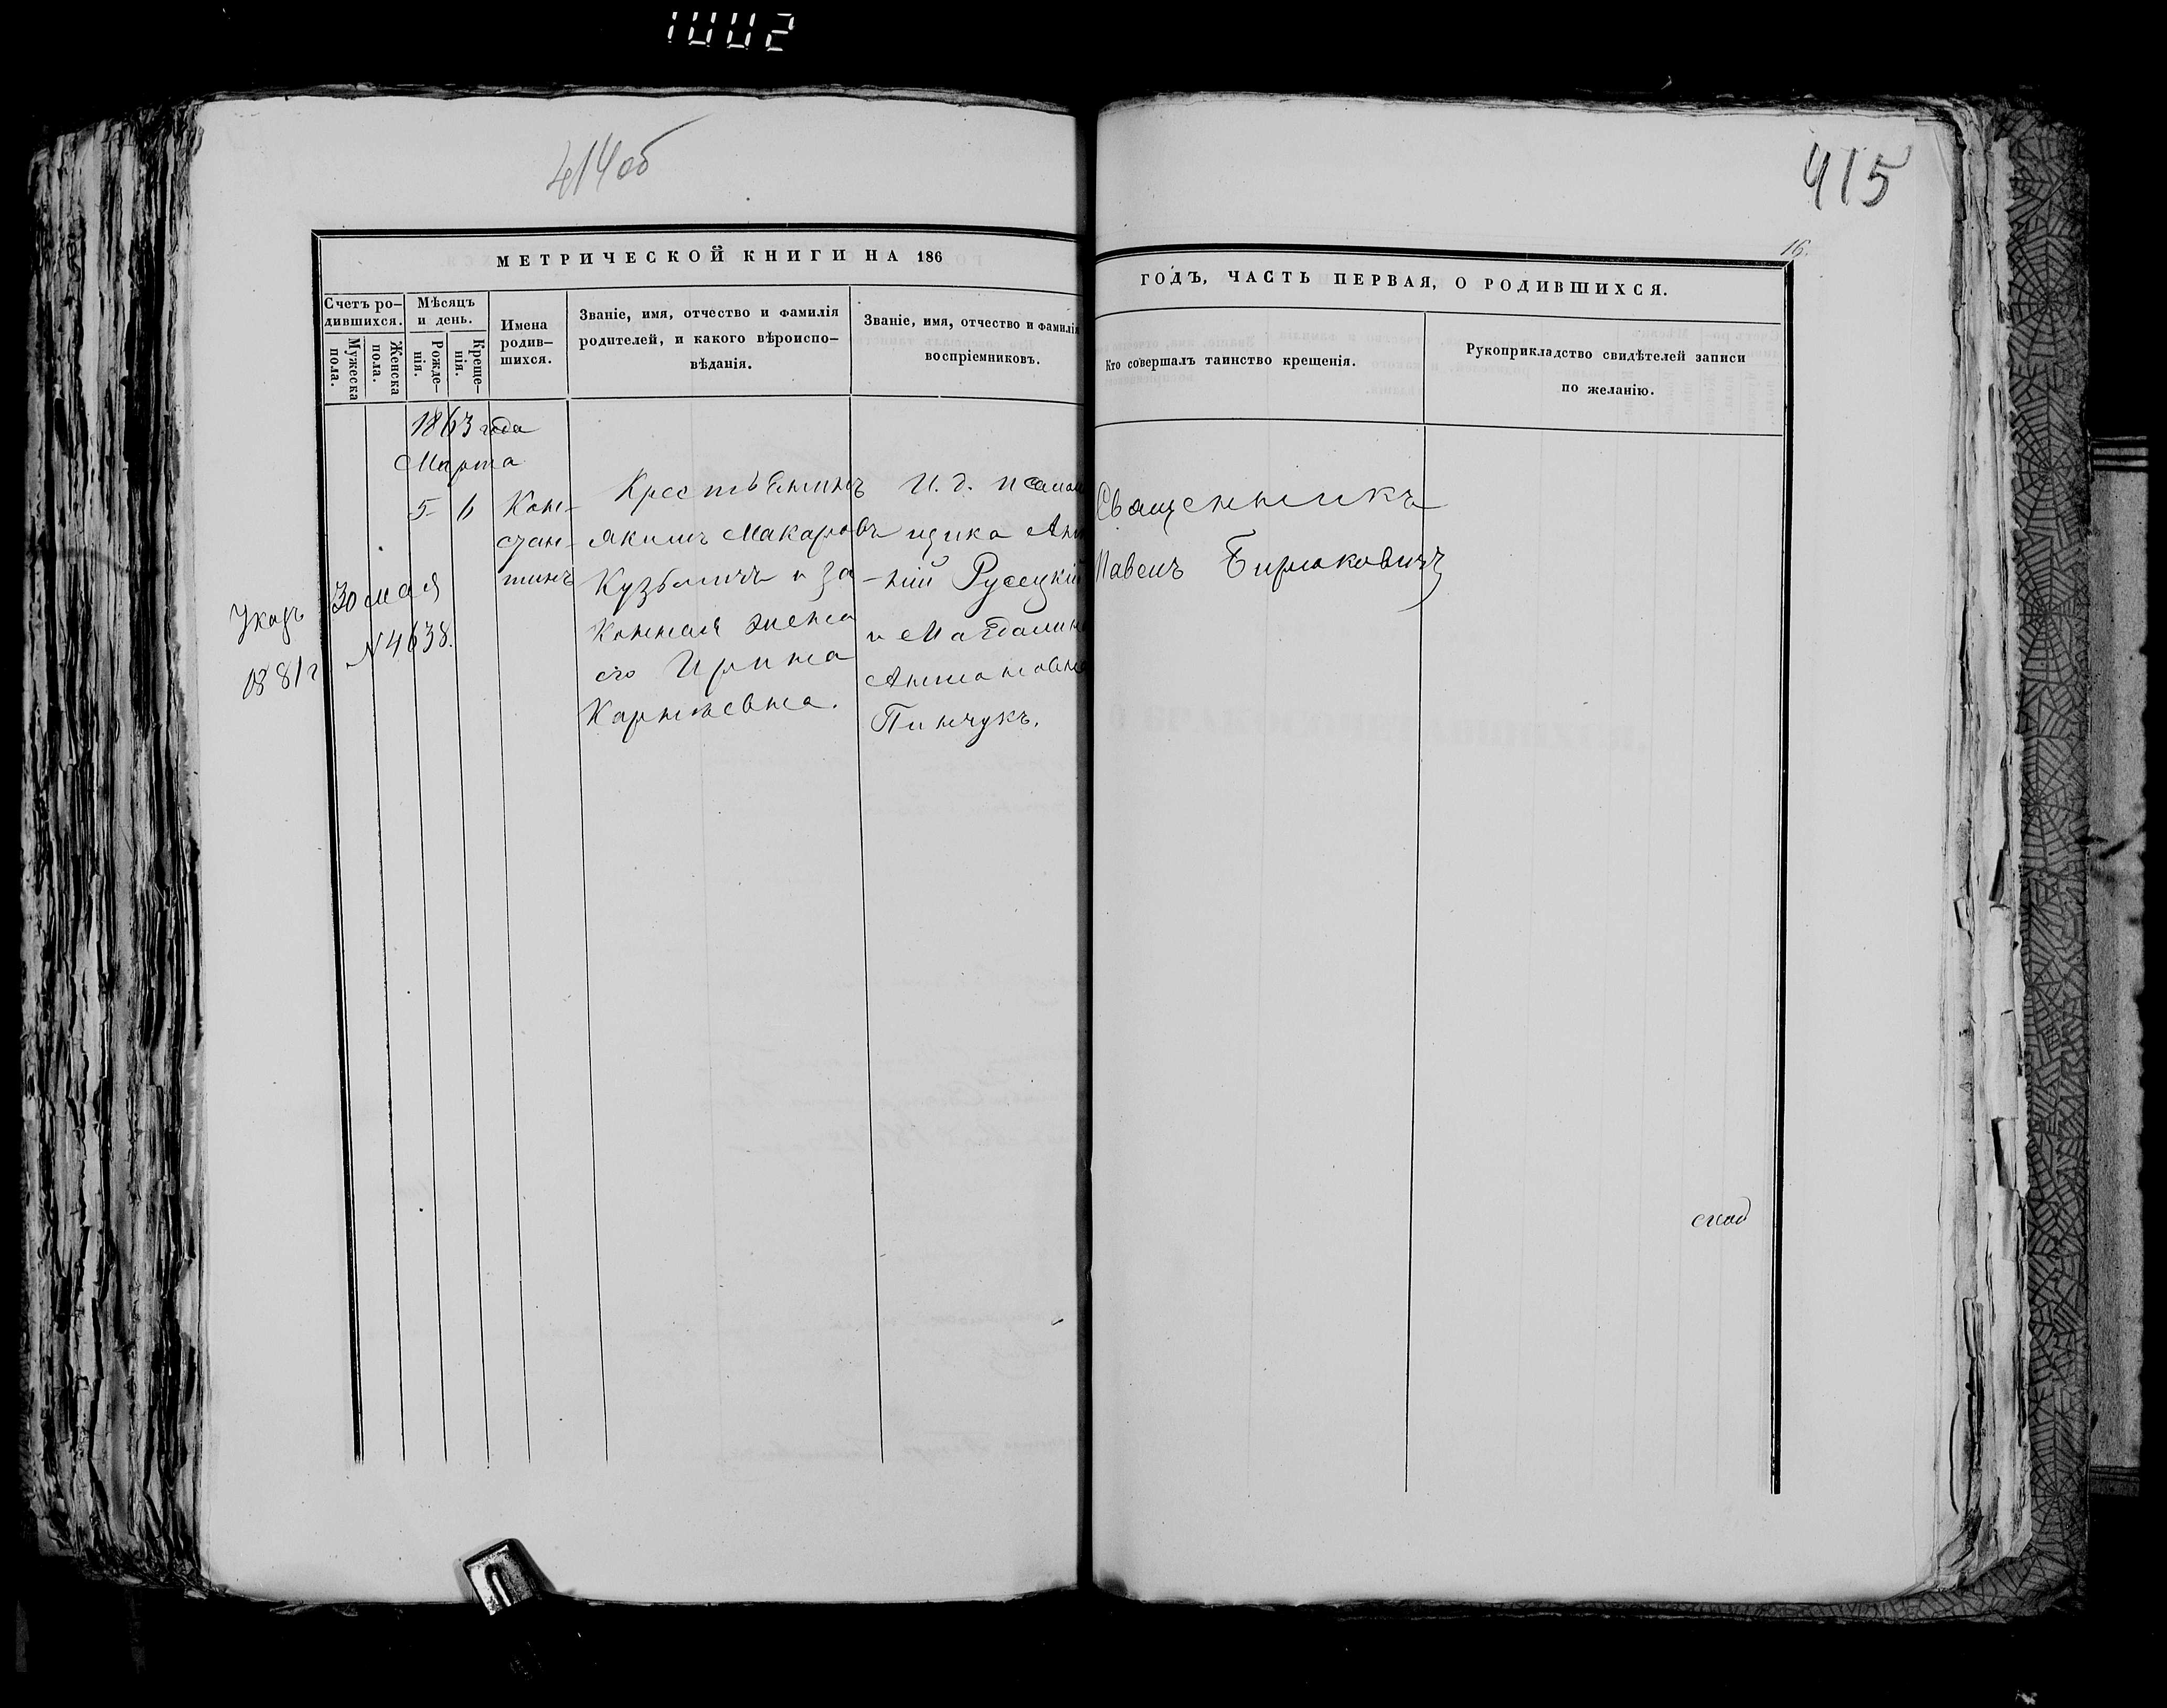 1002
414 об
415
16.
МЕТРИЧЕСКОЙ КНИГИ НА 186
ГОДЪ, ЧАСТЬ ПЕРВАЯ, О РОДИВШИХСЯ.
Счетъ ро-
дившихся.
Мужеска
пола.
Женска
пола.
Мѣсяцъ
и день.
Рожде-
нія.
Креще-
нія.
Имена
родив-
шихся.
Званіе, имя, отчество и фамилія
родителей, и какого вѣроиспо-
вѣданія.
Званіе, имя, отчество и фамилія
воспріемниковъ.
Кто совершалъ таинство крещенія.
Рукоприкладство свидѣтелей записи
по желанію.
1863 года
Марта
5 6
Кон-
стан-
тинъ
Крестьянинъ
Якимъ Макаровъ
Кузьмичъ и за
конная жена
его Ирина
Карниевна.
И. д. псалом
щика Ан
-ній Русецкій
и Магдалина
Антоновна
Пинчукъ.
Священникъ
Павелъ Бирюковичъ
Указъ 30 мая
1881 г № 4638.